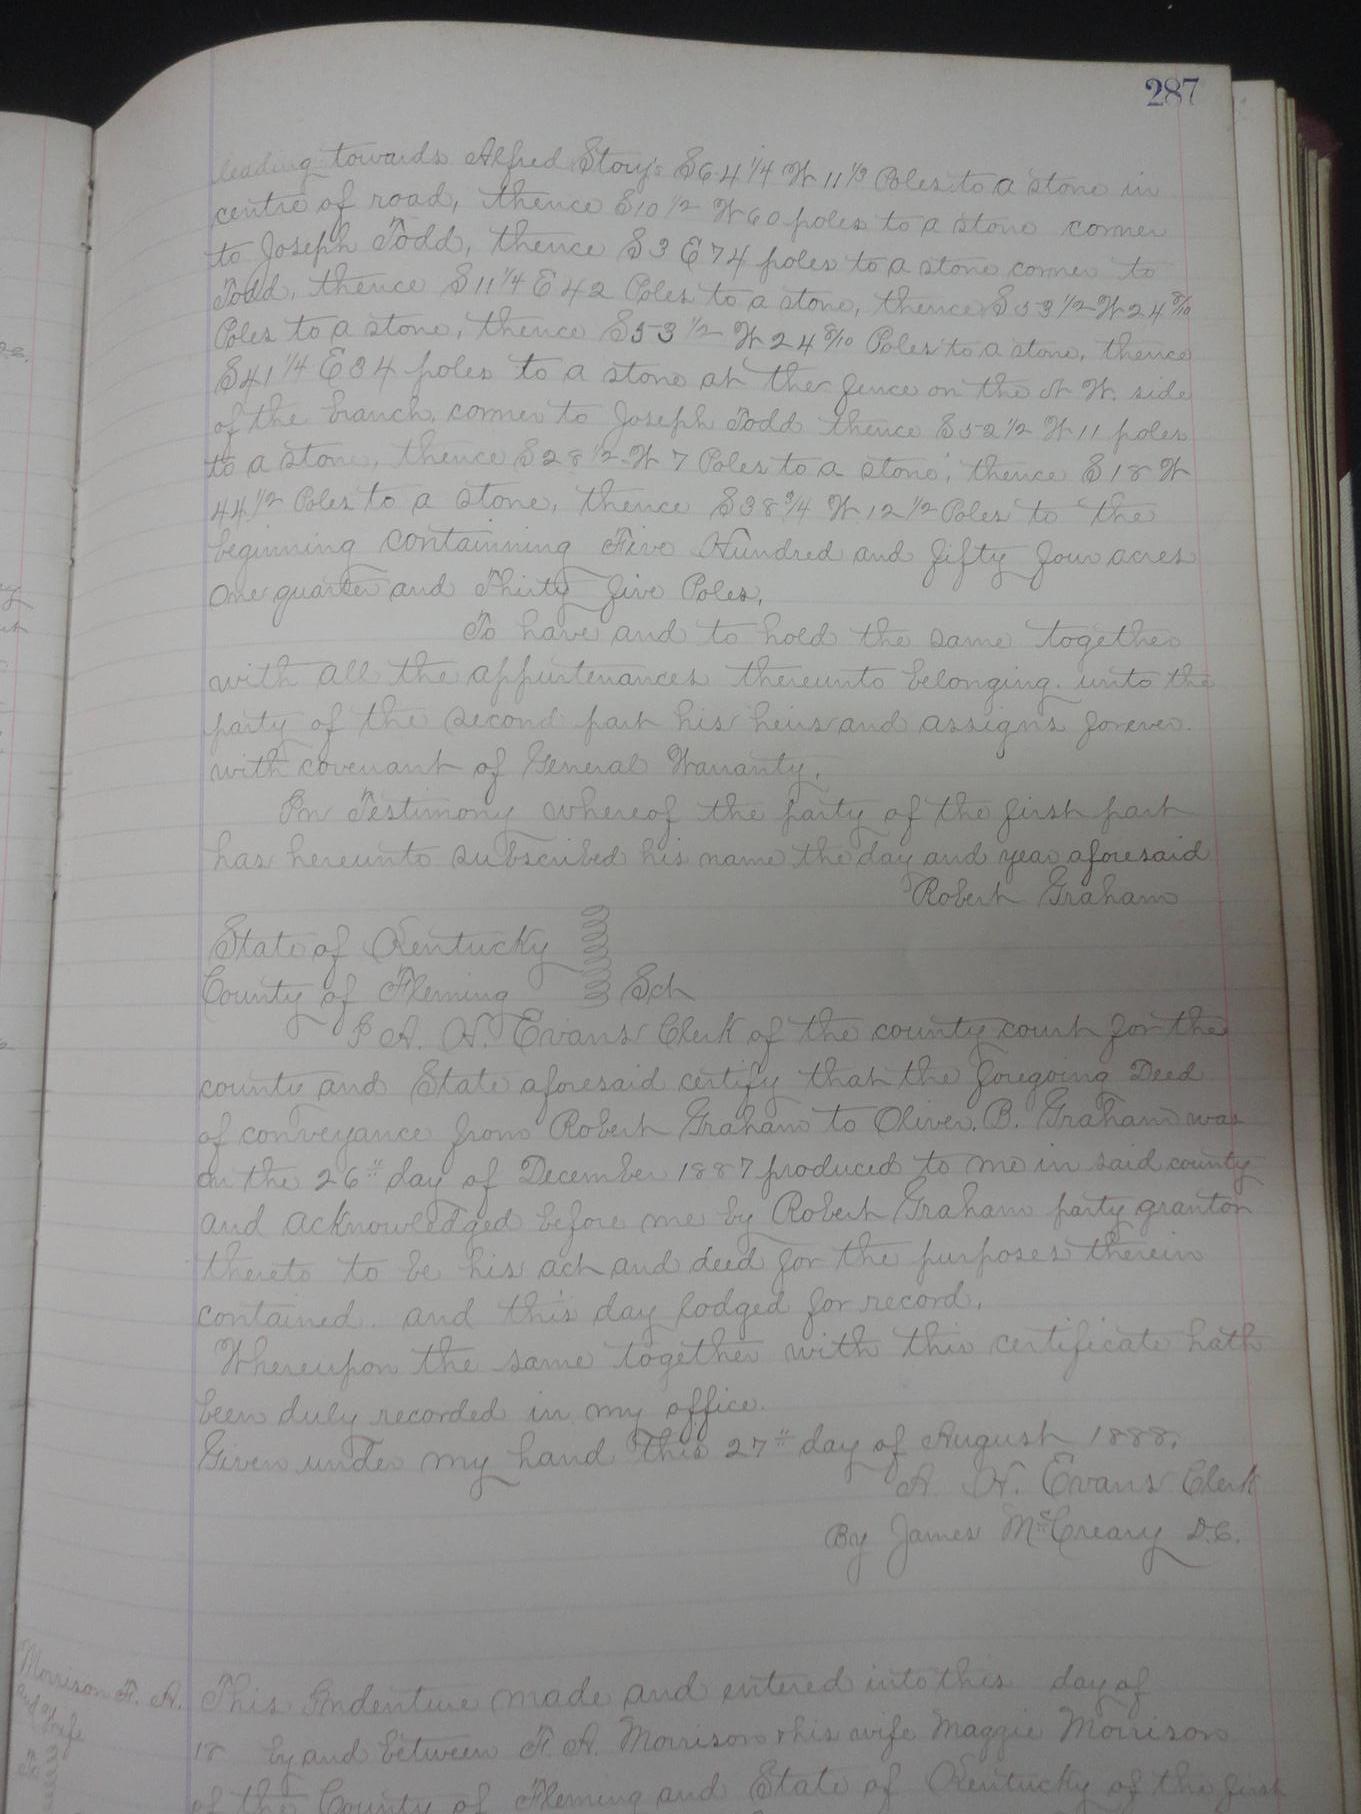 287
leading towards Alfred Story's S 64 1/4 W 11 1/3 Poles to a stone in
centre of road, thence S 10 1/2 W 60 poles to a stone corner
to Joseph Todd, thence S 3 E 74 poles to a stone corner to
Todd, thence S 11 1/4 E 42 Poles to a stone, thence S 53 1/2 W 24 8/10
Poles to a stone, thence S 53 1/2 W 24 8/10 Poles to a stone, thence
S 41 1/4 E 34 poles to a stone at the fence on the N W. side
of the branch, corner to Joseph Todd thence S 52 1/2 W 11 poles
to a stone, thence S 28 1/2 W 7 Poles to a stone, thence S 18 W
44 1/2 Poles to a stone, thence S 38 3/4 W 12 1/2 Poles to the
beginning containning Five Hundred and fifty four acres
one quarter and Thirty five Poles,
To have and to hold the same together
with all the appurtenances thereunto belonging. unto the
party of the second part his heirs and assigns forever.
with covenant of General Warranty.
In Testimony whereof the party of the first part
has hereunto subscribed his name the day and year aforesaid
Robert Graham
State of Kentucky
County of Fleming } Sct
I A. H. Evans Clerk of the county court for the
county and State aforesaid certify that the foregoing Deed
of conveyance from Robert Graham to Oliver. B. Graham was
on the 26th day of December 1887 produced to me in said county
and acknowledged before me by Robert Graham party grantor
thereto to be his act and deed for the purposes therein
contained. and this day lodged for record.
Whereupon the same together with this certificate hath
been duly recorded in my office.
Given under my hand This 27th day of August 1888.
A. H. Evans Clerk
By James McCreary D.C.
Morrison F. A.
and Wife
To
This Indenture made and entered into this day of
18 by and between F. A. Morrison & his wife Maggie Morrison
of the County of Fleming and State of Kentucky of the first